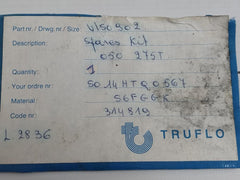 Part nr / Drwg.nr / Size V/50902
Description: Spares Kit
050 275T
Quantity: 1
Your ordre nr: 5014HTQ0567
Material: S6FGGK
314819
L 2836
TRUFLO